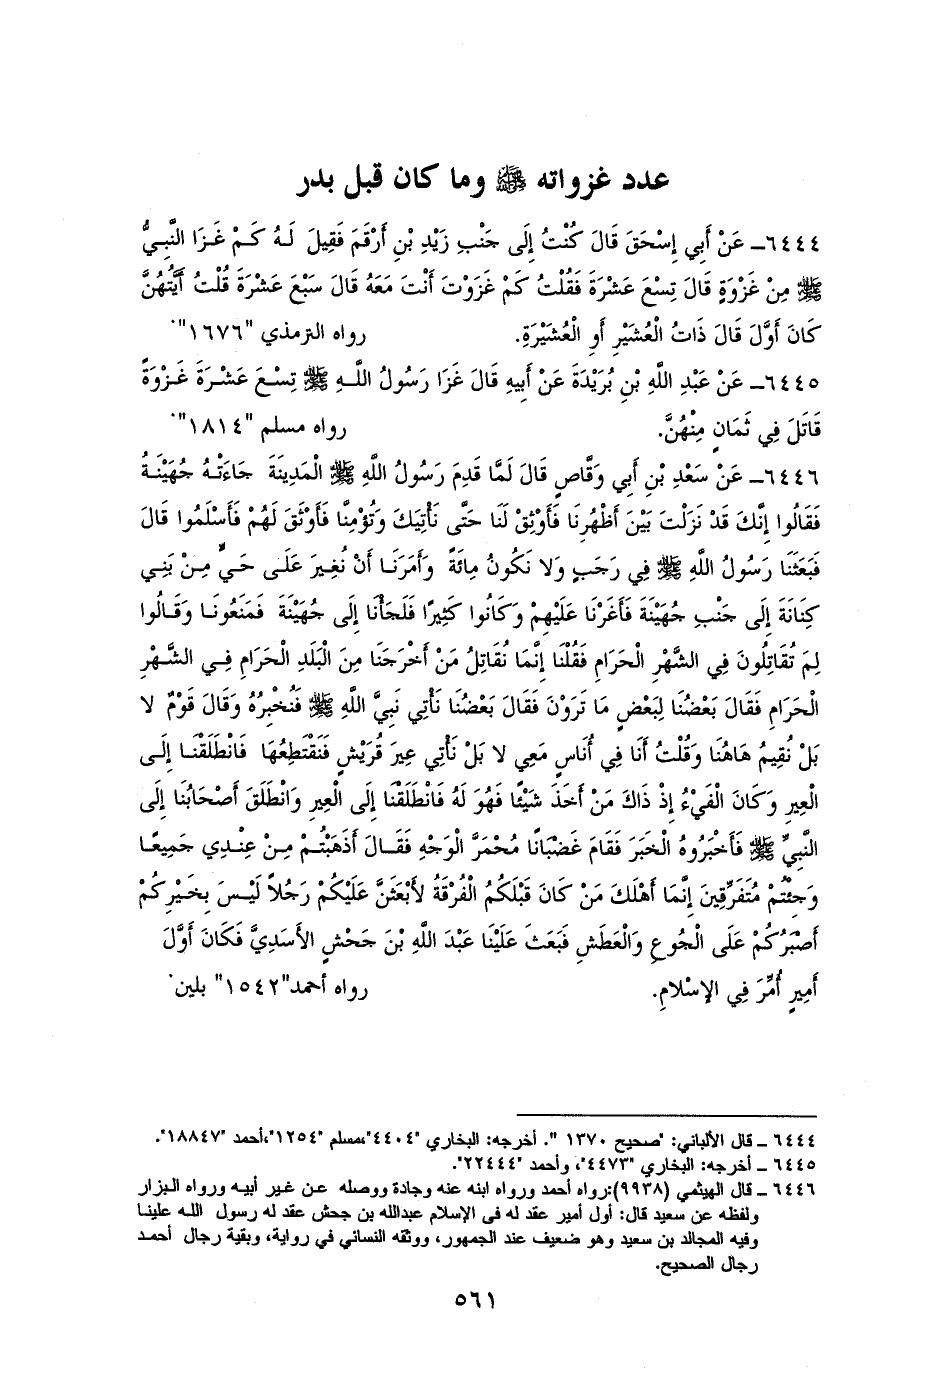 عدد غزواته ﷺ وما كان قبل بدر
٦٤٤٤ــ عَنْ أَبِي إِسْحَقَ قَالَ كُنْتُ إِلَى جَنْبِ زَيْدِ بْنِ أَرْقَمَ فَقِيلَ لَهُ كَمْ غَزَا النَّبِيُّ
ﷺ مِنْ غَزْوَةٍ قَالَ تِسْعَ عَشْرَةَ فَقُلْتُ كَمْ غَزَوْتَ أَنْتَ مَعَهُ قَالَ سَبْعَ عَشْرَةَ قُلْتُ أَيَّتُهُنَّ
كَانَ أَوَّلَ قَالَ ذَاتُ الْعُشَيْرِ أَوِ الْعُشَيْرَةِ. رواه الترمذي "١٦٧٦".
٦٤٤٥ــ عَنْ عَبْدِ اللَّهِ بْنِ بُرَيْدَةَ عَنْ أَبِيهِ قَالَ غَزَا رَسُولُ اللَّهِ ﷺ تِسْعَ عَشْرَةَ غَزْوَةً
قَاتَلَ فِي ثَمَانٍ مِنْهُنَّ. رواه مسلم "١٨١٤".
٦٤٤٦ــ عَنْ سَعْدِ بْنِ أَبِي وَقَّاصٍ قَالَ لَمَّا قَدِمَ رَسُولُ اللَّهِ ﷺ الْمَدِينَةَ جَاءَتْهُ جُهَيْنَةُ
فَقَالُوا إِنَّكَ قَدْ نَزَلْتَ بَيْنَ أَظْهُرِنَا فَأَوْثِقْ لَنَا حَتَّى نَأْتِيَكَ وَتُؤْمِنَّا فَأَوْثَقَ لَهُمْ فَأَسْلَمُوا قَالَ
فَبَعَثَنَا رَسُولُ اللَّهِ ﷺ فِي رَجَبٍ وَلا نَكُونُ مِائَةً وَأَمَرَنَا أَنْ نُغِيرَ عَلَى حَيٍّ مِنْ بَنِي
كِنَانَةَ إِلَى جَنْبِ جُهَيْنَةَ فَأَغَرْنَا عَلَيْهِمْ وَكَانُوا كَثِيرًا فَلَجَأْنَا إِلَى جُهَيْنَةَ فَمَنَعُونَا وَقَالُوا
لِمَ تُقَاتِلُونَ فِي الشَّهْرِ الْحَرَامِ فَقُلْنَا إِنَّمَا نُقَاتِلُ مَنْ أَخْرَجَنَا مِنَ الْبَلَدِ الْحَرَامِ فِي الشَّهْرِ
الْحَرَامِ فَقَالَ بَعْضُنَا لِبَعْضٍ مَا تَرَوْنَ فَقَالَ بَعْضُنَا نَأْتِي نَبِيَّ اللَّهِ ﷺ فَنُخْبِرُهُ وَقَالَ قَوْمٌ لا
بَلْ نُقِيمُ هَاهُنَا وَقُلْتُ أَنَا فِي أُنَاسٍ مَعِي لا بَلْ نَأْتِي عِيرَ قُرَيْشٍ فَنَقْتَطِعُهَا فَانْطَلَقْنَا إِلَى
الْعِيرِ وَكَانَ الْفَيْءُ إِذْ ذَاكَ مَنْ أَخَذَ شَيْئًا فَهُوَ لَهُ فَانْطَلَقْنَا إِلَى الْعِيرِ وَانْطَلَقَ أَصْحَابُنَا إِلَى
النَّبِيِّ ﷺ فَأَخْبَرُوهُ الْخَبَرَ فَقَامَ غَضْبَانًا مُحْمَرَّ الْوَجْهِ فَقَالَ أَذَهَبْتُمْ مِنْ عِنْدِي جَمِيعًا
وَجِئْتُمْ مُتَفَرِّقِينَ إِنَّمَا أَهْلَكَ مَنْ كَانَ قَبْلَكُمُ الْفُرْقَةُ لأَبْعَثَنَّ عَلَيْكُمْ رَجُلاً لَيْسَ بِخَيْرِكُمْ
أَصْبَرُكُمْ عَلَى الْجُوعِ وَالْعَطَشِ فَبَعَثَ عَلَيْنَا عَبْدَ اللَّهِ بْنَ جَحْشٍ الأَسَدِيَّ فَكَانَ أَوَّلَ
أَمِيرٍ أُمِّرَ فِي الإِسْلامِ. رواه أحمد"١٥٤٢" بلين.
٦٤٤٤ ــ قال الألباني: "صحيح ١٣٧٠ ". أخرجه: البخاري "٤٤٠٤"،مسلم "١٢٥٤"،أحمد "١٨٨٤٧".
٦٤٤٥ ــ أخرجه: البخاري "٤٤٧٣"، وأحمد "٢٢٤٤٤".
٦٤٤٦ ــ قال الهيثمي (٩٩٣٨):رواه أحمد ورواه ابنه عنه وجادة ووصله عن غير أبيه ورواه البزار
ولفظه عن سعيد قال: أول أمير عقد له فى الإسلام عبدالله بن جحش عقد له رسول الله علينا
وفيه المجالد بن سعيد وهو ضعيف عند الجمهور، ووثقه النسائي في رواية، وبقية رجال أحمد
رجال الصحيح.
٥٦١